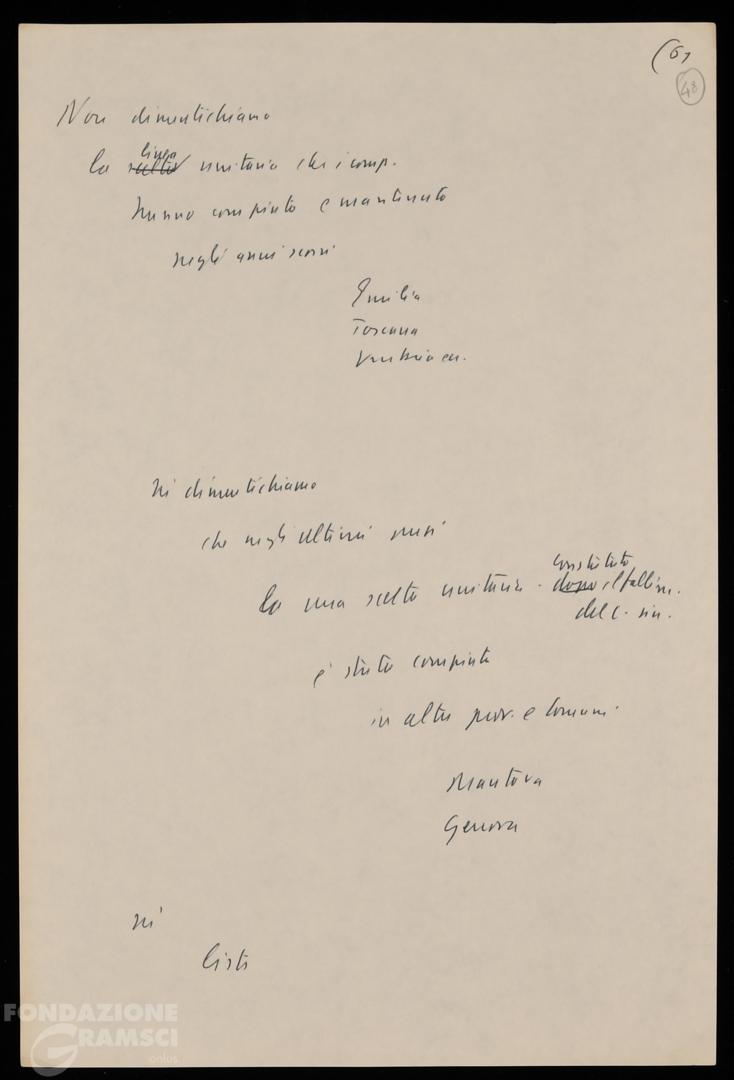 (61
48
Non dimentichiamo
linea
la scelta unitaria che i comp.
hanno compiuto e mantenuto
negli anni scorsi
Emilia
Toscana
Umbria ecc.
né dimentichiamo
che negli ultimi mesi
constatato
la una scelta unitaria - dopo il fallim.
del c. sin.
è stata compiuta
in altre prov. e comuni
Mantova
Genova
né
liste
FONDAZIONE
GRAMSCI
onlus